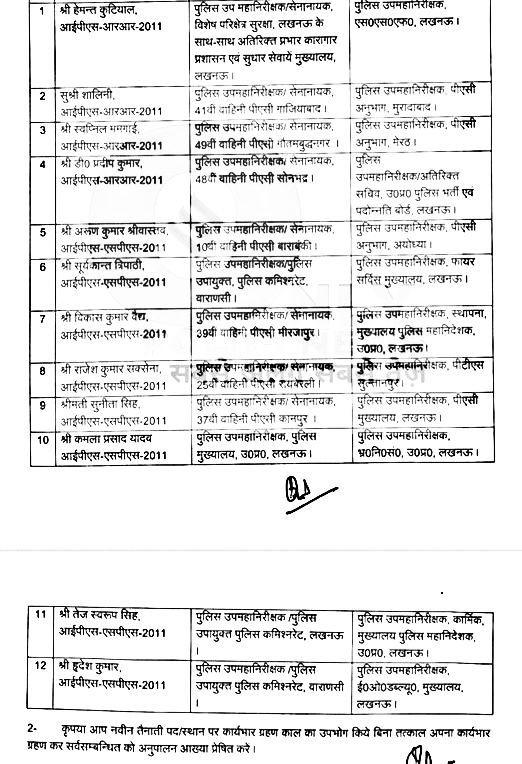 1 श्री हेमन्त कुटियाल, पुलिस उप महानिरीक्षक/सेनानायक, पुलिस उपमहानिरीक्षक,
आईपीएस-आरआर-2011 विशेष परिक्षेत्र सुरक्षा, लखनऊ के एस0एस0एफ0, लखनऊ।
साथ-साथ अतिरिक्त प्रभार कारागार
प्रशासन एवं सुधार सेवायें मुख्यालय,
लखनऊ।
2 सुश्री शालिनी, पुलिस उपमहानिरीक्षक/ सेनानायक, पुलिस उपमहानिरीक्षक, पीएसी
आईपीएस-आरआर-2011 41वी वाहिनी पीएसी गाजियाबाद। अनुभाग, मुरादाबाद।
3 श्री स्वप्निल ममगाई, पुलिस उपमहानिरीक्षक/ सेनानायक, पुलिस उपमहानिरीक्षक, पीएसी
आईपीएस-आरआर-2011 49वी वाहिनी पीएसी गौतमबुद्धनगर। अनुभाग, मेरठ।
4 श्री डी0 प्रदीप कुमार, पुलिस उपमहानिरीक्षक/ सेनानायक, पुलिस
आईपीएस-आरआर-2011 48वी वाहिनी पीएसी सोनभद्र। उपमहानिरीक्षक/अतिरिक्त
सचिव, उ0प्र0 पुलिस भर्ती एवं
पदोन्नति बोर्ड, लखनऊ।
5 श्री अरूण कुमार श्रीवास्तव, पुलिस उपमहानिरीक्षक/ सेनानायक, पुलिस उपमहानिरीक्षक, पीएसी
आईपीएस-एसपीएस-2011 10वी वाहिनी पीएसी बाराबंकी। अनुभाग, अयोध्या।
6 श्री सूर्यकान्त त्रिपाठी, पुलिस उपमहानिरीक्षक/पुलिस पुलिस उपमहानिरीक्षक, फायर
आईपीएस-एसपीएस-2011 उपायुक्त, पुलिस कमिश्नरेट, सर्विस मुख्यालय, लखनऊ।
वाराणसी।
7 श्री विकास कुमार वैद्य, पुलिस उपमहानिरीक्षक/ सेनानायक, पुलिस उपमहानिरीक्षक, स्थापना,
आईपीएस-एसपीएस-2011 39वी वाहिनी पीएसी मीरजापुर। मुख्यालय पुलिस महानिदेशक,
उ0प्र0, लखनऊ।
8 श्री राजेश कुमार सक्सेना, पुलिस उपमहानिरीक्षक/ सेनानायक, पुलिस उपमहानिरीक्षक, पीटीएस
आईपीएस-एसपीएस-2011 25वी वाहिनी पीएसी रायबरेली। सुल्तानपुर।
9 श्रीमती सुनीता सिंह, पुलिस उपमहानिरीक्षक/ सेनानायक, पुलिस उपमहानिरीक्षक, पीएसी
आईपीएस-एसपीएस-2011 37वी वाहिनी पीएसी कानपुर। मुख्यालय, लखनऊ।
10 श्री कमला प्रसाद यादव पुलिस उपमहानिरीक्षक, पुलिस पुलिस उपमहानिरीक्षक,
आईपीएस-एसपीएस-2011 मुख्यालय, उ0प्र0, लखनऊ। भ्र0नि0सं0, उ0प्र0, लखनऊ।
11 श्री तेज स्वरूप सिंह, पुलिस उपमहानिरीक्षक /पुलिस पुलिस उपमहानिरीक्षक, कार्मिक,
आईपीएस-एसपीएस-2011 उपायुक्त पुलिस कमिश्नरेट, लखनऊ मुख्यालय पुलिस महानिदेशक,
। उ0प्र0, लखनऊ।
12 श्री हृदेश कुमार, पुलिस उपमहानिरीक्षक /पुलिस पुलिस उपमहानिरीक्षक,
आईपीएस-एसपीएस-2011 उपायुक्त पुलिस कमिश्नरेट, वाराणसी ई0ओ0डब्ल्यू0, मुख्यालय,
। लखनऊ।
2- कृपया आप नवीन तैनाती पद/स्थान पर कार्यभार ग्रहण काल का उपभोग किये बिना तत्काल अपना कार्यभार
ग्रहण कर सर्वसम्बन्धित को अनुपालन आख्या प्रेषित करें।